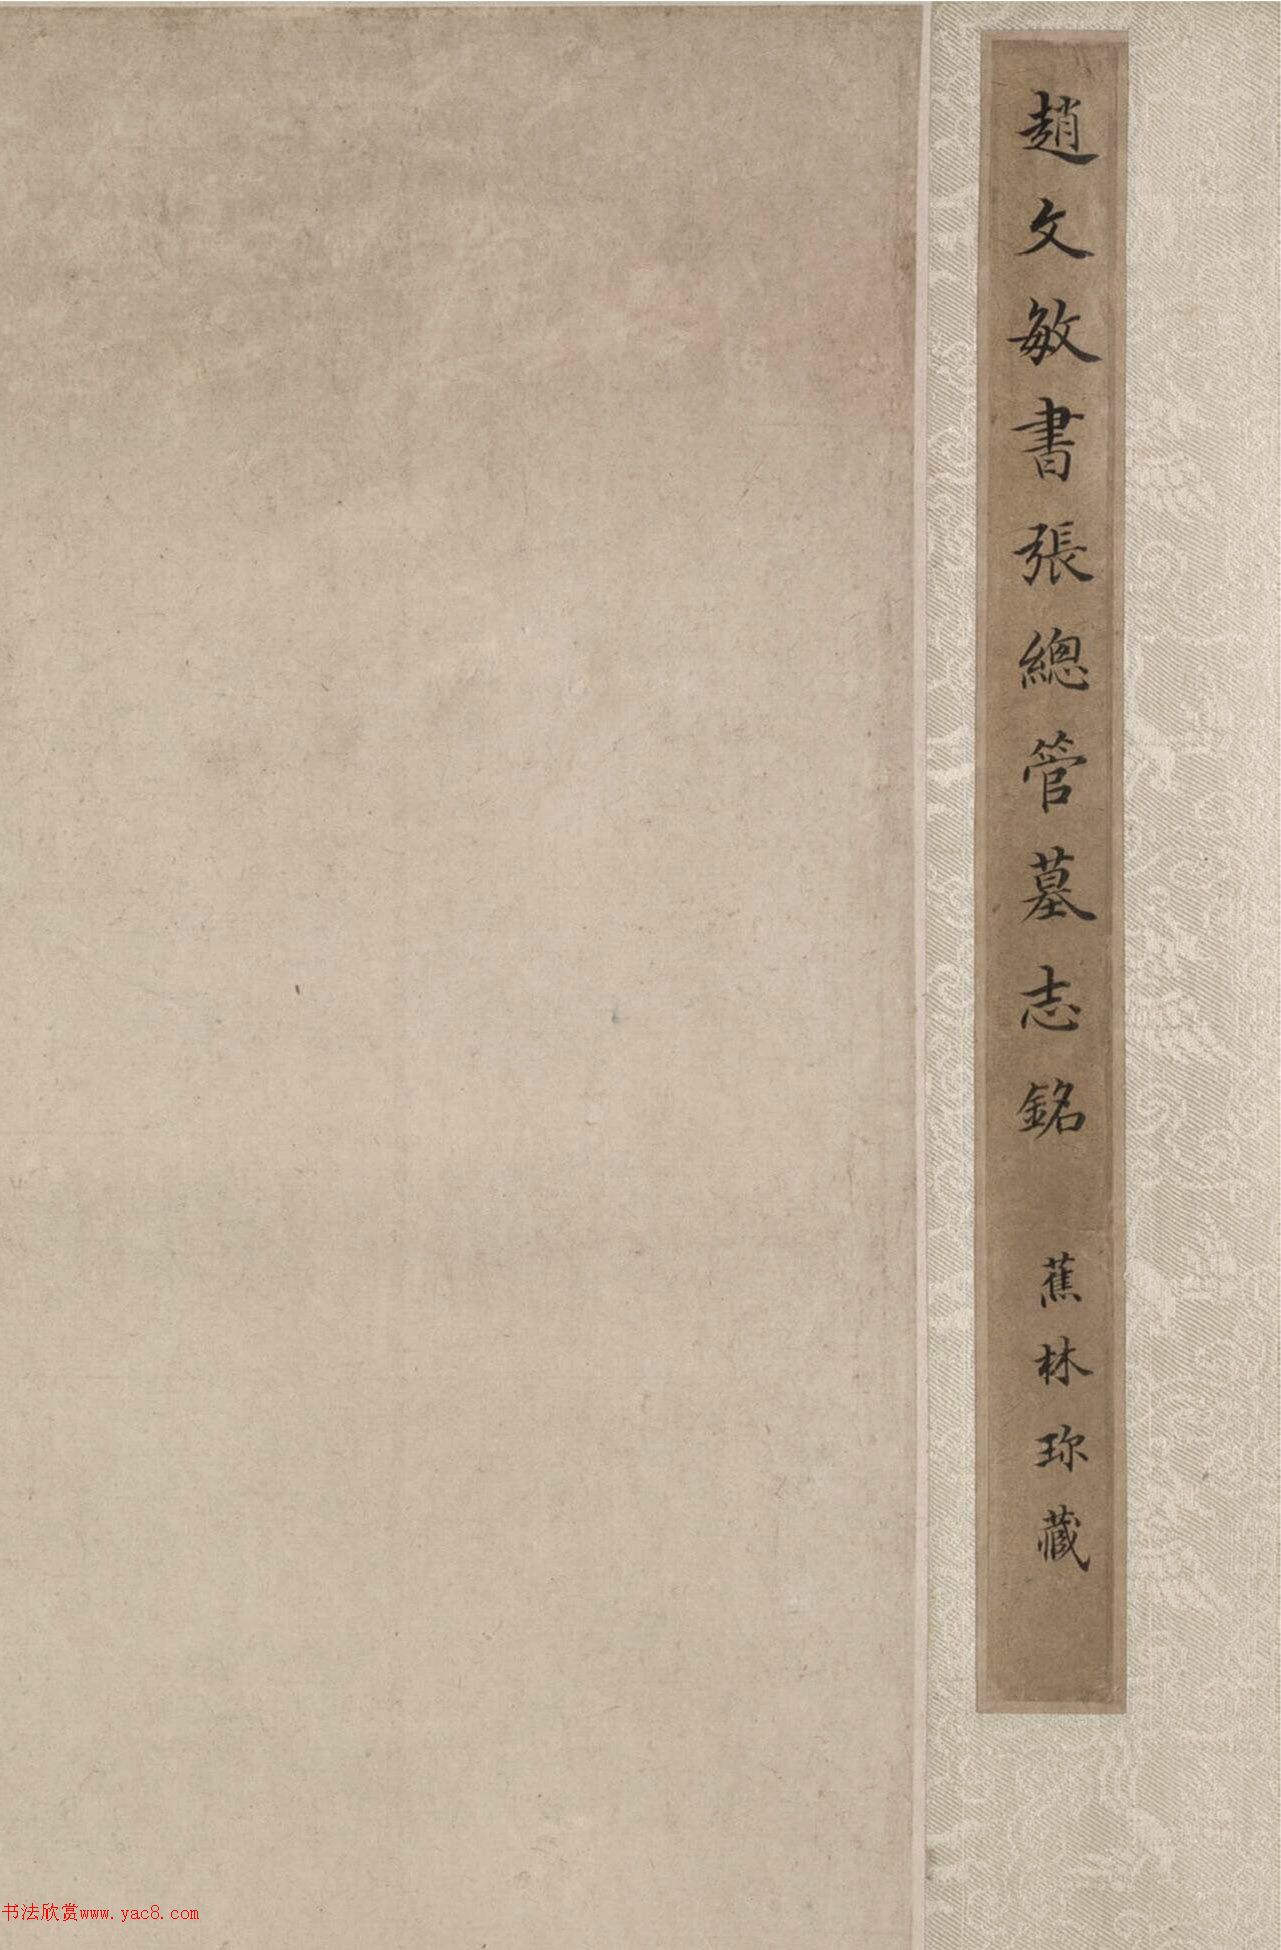 趙文敏書張總管墓志銘 蕉林珎藏
书法欣赏www.yac8.com